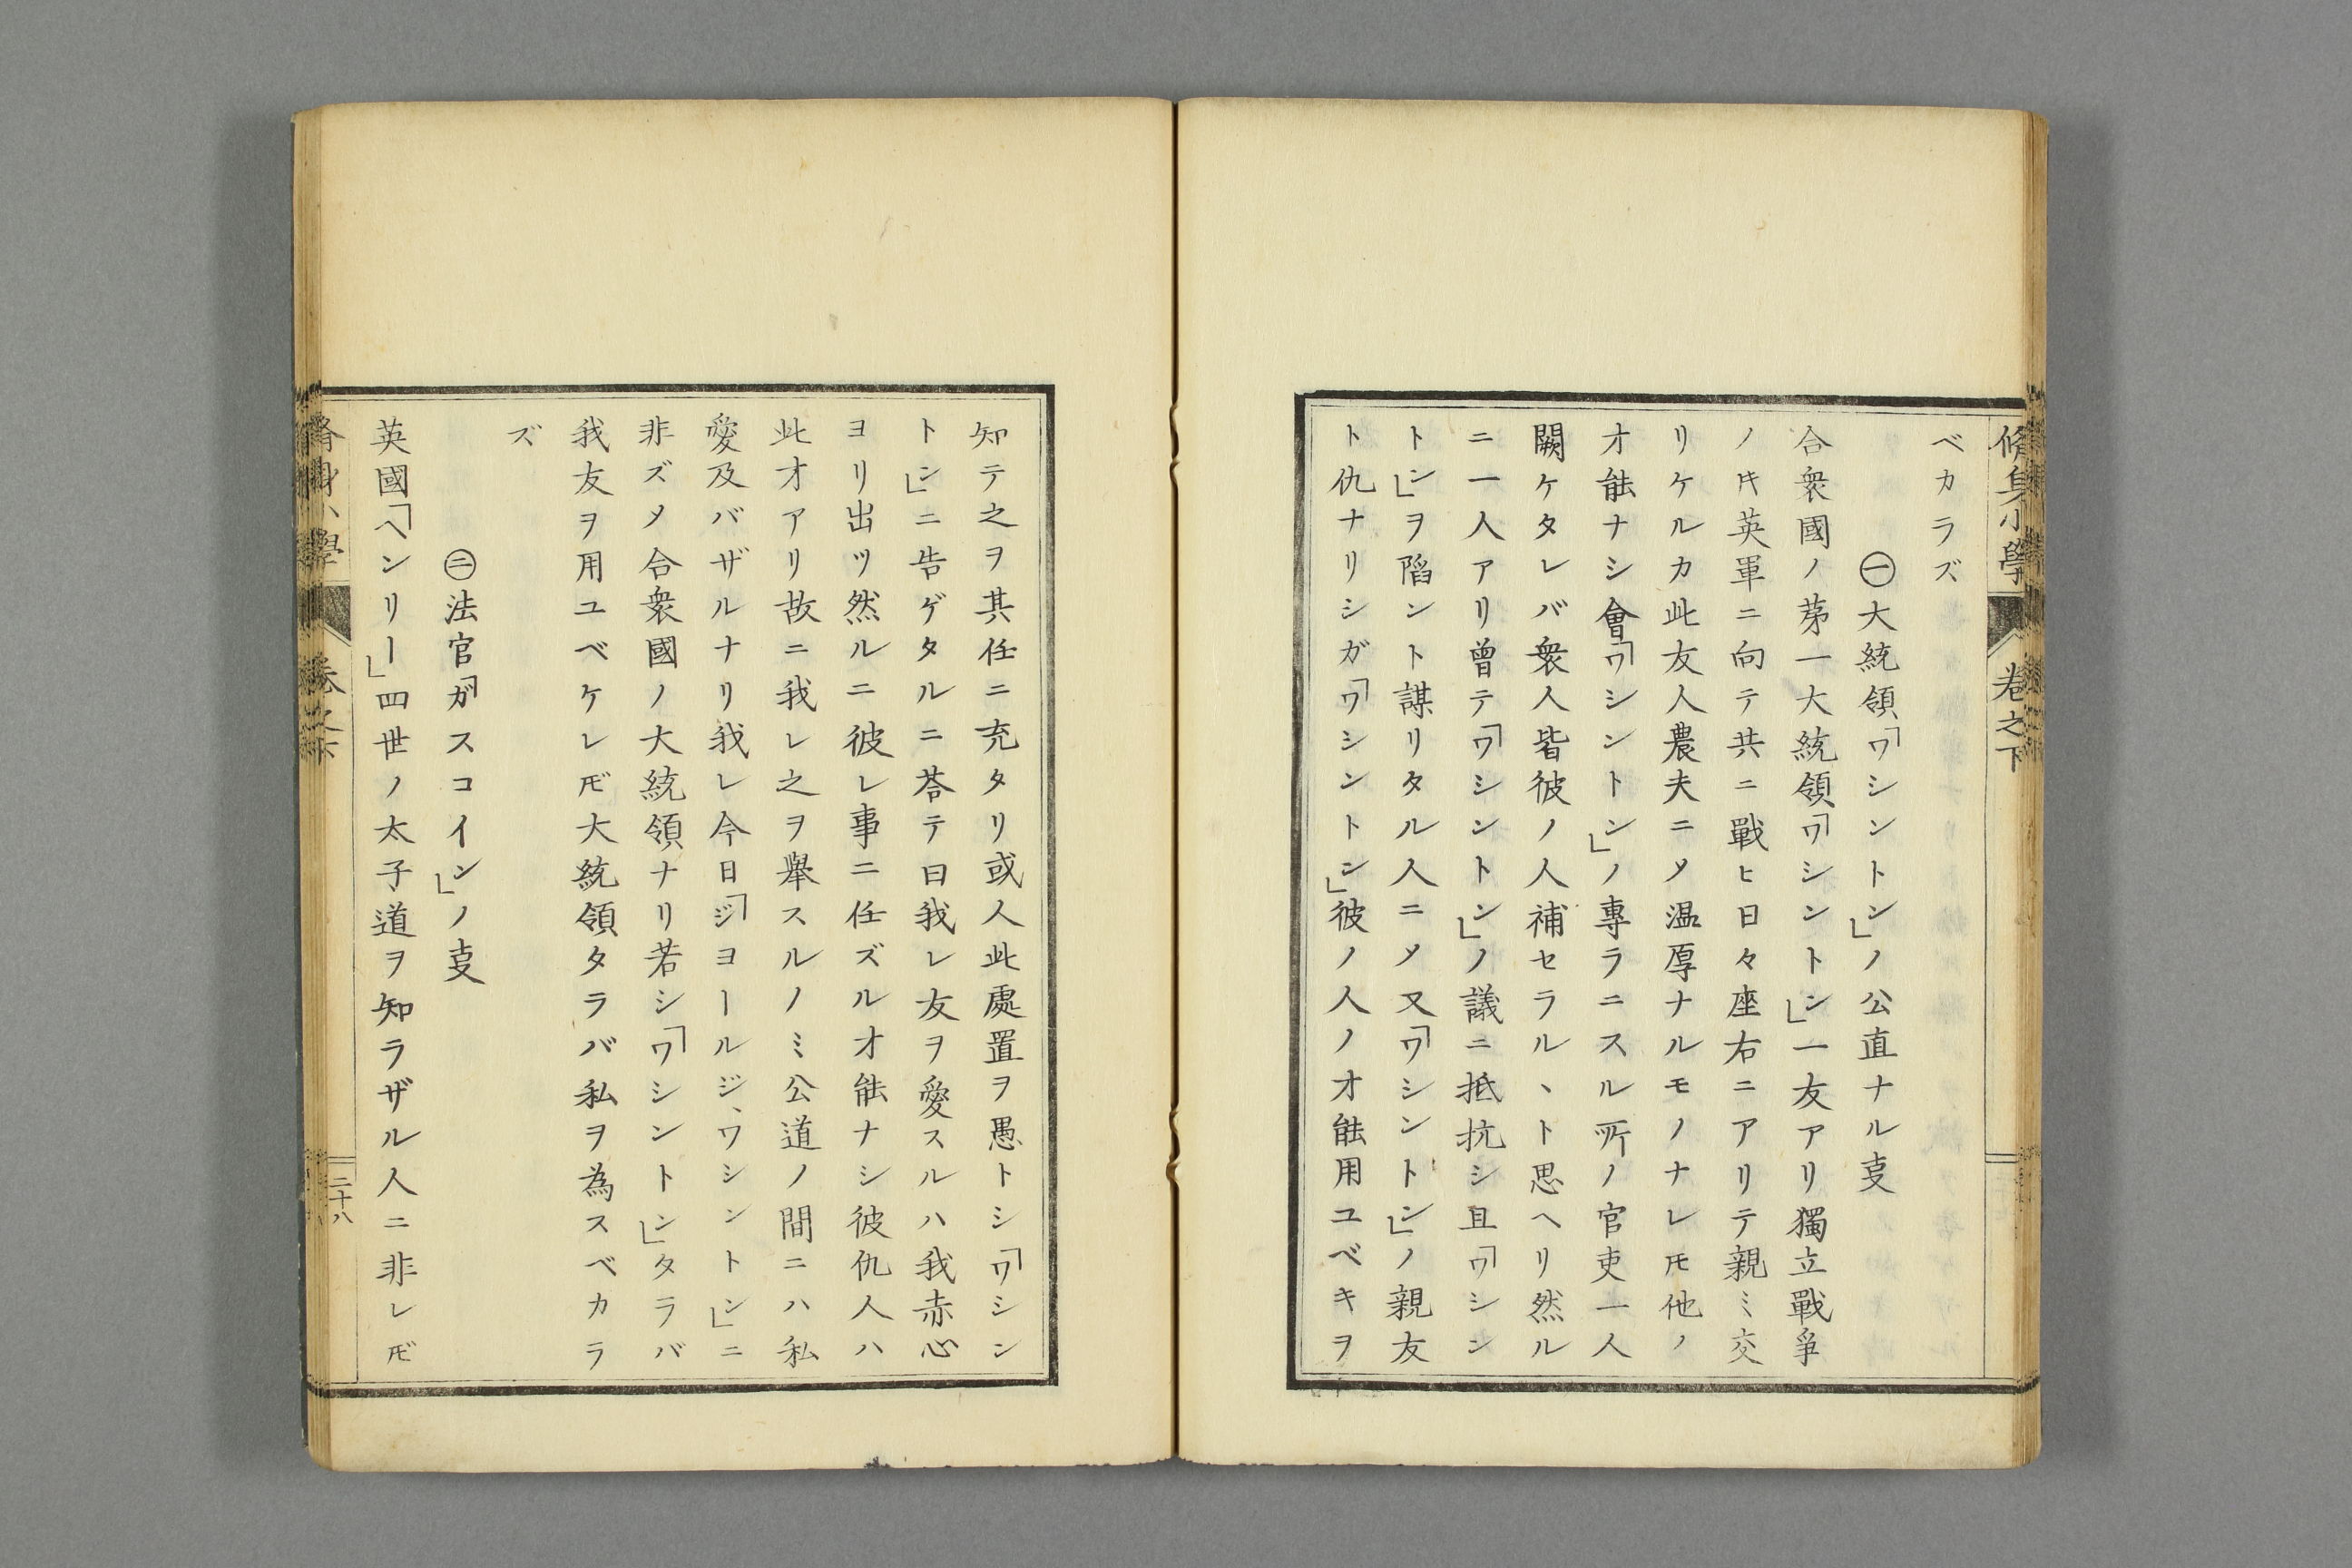 脩身小學 卷之下
ベカラズ
㊀大統領「ワシントン」ノ公直ナル叓
合衆國ノ苐一大統領「ワシントン」一友アリ獨立戰爭
ノ𪜈英軍ニ向テ共ニ戰ヒ日々座右ニアリテ親ミ交
リケルカ此友人農夫ニメ温厚ナルモノナレ𪜈他ノ
才能ナシ會「ワシントン」ノ專ラニスル所ノ官吏一人
闕ケタレバ衆人皆彼ノ人補セラル丶ト思ヘリ然ル
ニ一人アリ曽テ「ワシントン」ノ議ニ抵抗シ且「ワシン
トン」ヲ陷ント謀リタル人ニメ又「ワシントン」ノ親友
ト仇ナリシガ「ワシントン」彼ノ人ノ才能用ユベキヲ
知テ之ヲ其任ニ充タリ或人此處置ヲ愚トシ「ワシン
トン」ニ告ゲタルニ荅テ曰我レ友ヲ愛スルハ我赤心
ヨリ出ツ然ルニ彼レ事ニ任ズル才能ナシ彼仇人ハ
此才アリ故ニ我レ之ヲ舉スルノミ公道ノ間ニハ私
愛及バザルナリ我レ今日「ジヨールジ、ワシントン」ニ
非ズメ合衆國ノ大統領ナリ若シ「ワシントン」タラバ
我友ヲ用ユベケレ𪜈大統領タラバ私ヲ為スベカラ
ズ
㊁法官「ガスコイン」ノ叓
英國「ヘンリー」四世ノ太子道ヲ知ラザル人ニ非レ𪜈
脩身小學 卷之下 二十八